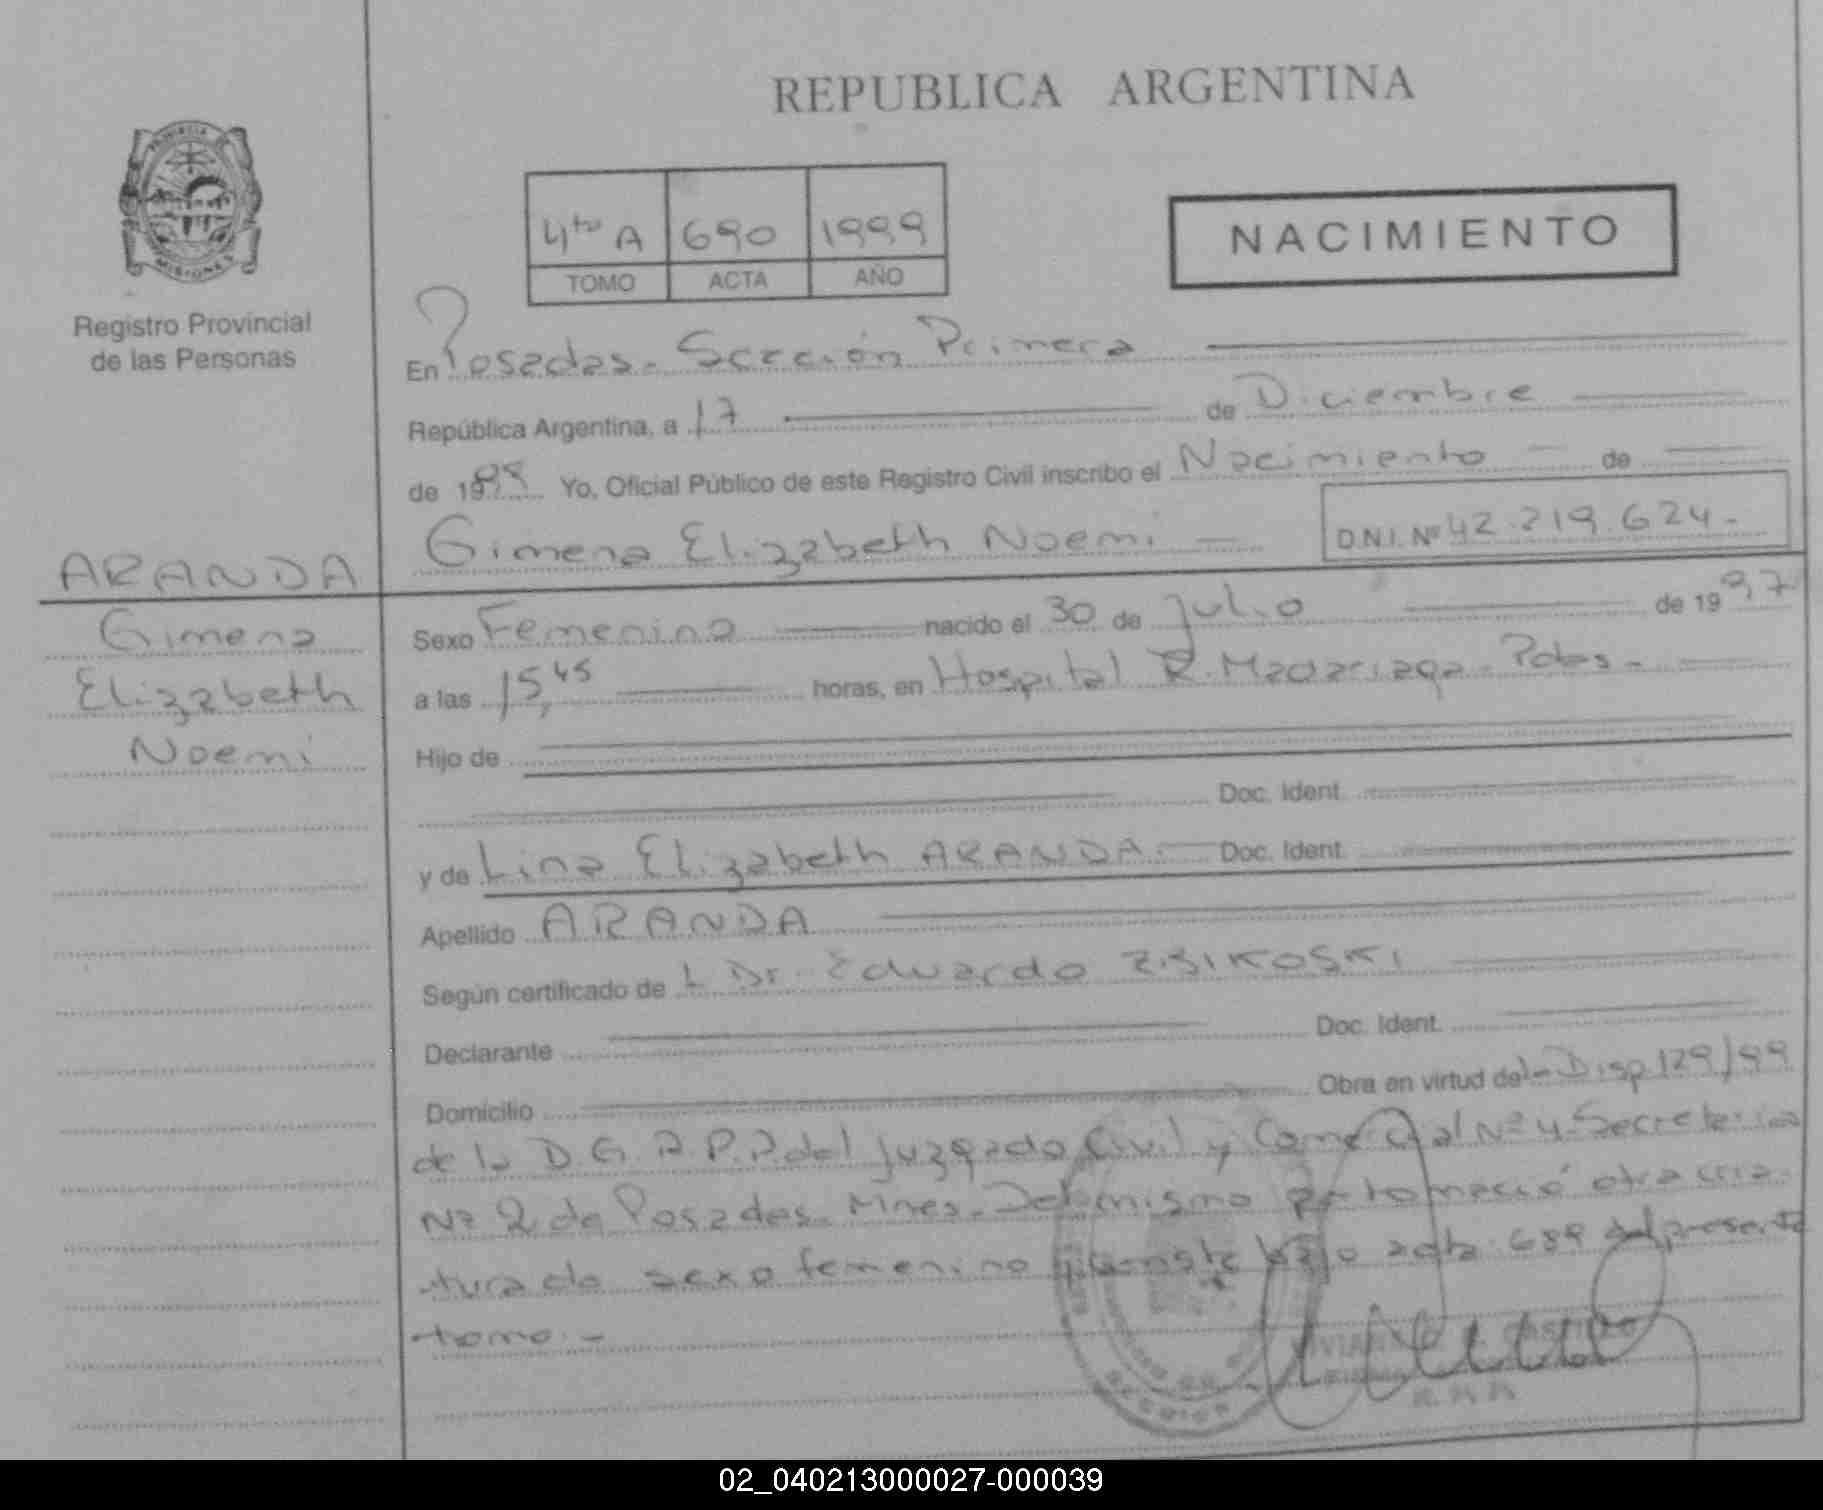 REPUBLICA ARGENTINA
PROVINCIA
MISIONES
Registro Provincial
de las Personas
4to A 690 1999
TOMO ACTA AÑO
NACIMIENTO
En Posadas - Sección Primera
República Argentina, a 17 de Diciembre
de 1999 Yo, Oficial Público de este Registro Civil inscribo el Nacimiento de
Gimena Elizabeth Noemi D.N.I. Nº 42.219.624.-
ARANDA
Gimena
Elizabeth
Noemi
Sexo Femenino nacido el 30 de Julio de 1997
a las 15,45 horas, en Hospital R. Madariaga - Pdas -
Hijo de
Doc. Ident.
y de Lina Elizabeth ARANDA.- Doc. Ident.
Apellido ARANDA
Según certificado de L Dr. Eduardo
Declarante Doc. Ident.
Domicilio Obra en virtud de la Disp 129/99
de la D.G.R.P.P. del Juzgado Civil y Comercial Nº 4 - Secretaria
Nº 2 de Posadas - Mnes - Del mismo otra cria-
tura de sexo femenino bajo acta 689 del presente
tomo.-
02_040213000027-000039